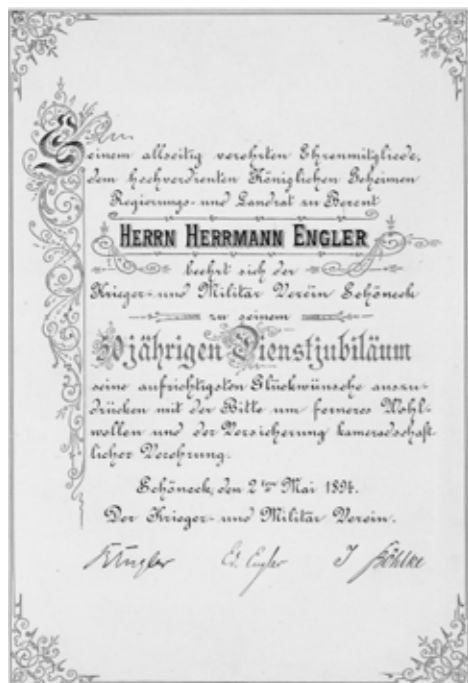 Seinem allseitig verehrten Ehrenmitgliede,
dem hochverdienten Königlichen Geheimen
Regierungs- und Landrat zu Berent
HERRN HERRMANN ENGLER
beehrt sich der
Krieger- und Militär Verein Schöneck
zu seinem
50jährigen Dienstjubiläum
seine aufrichtigsten Glückwünsche auszu-
drücken mit der Bitte um ferneres Wohl-
wollen und der Versicherung kameradschaft
licher Verehrung.
Schöneck, den 2ten Mai 1894.
Der Krieger- und Militär Verein.
Engler